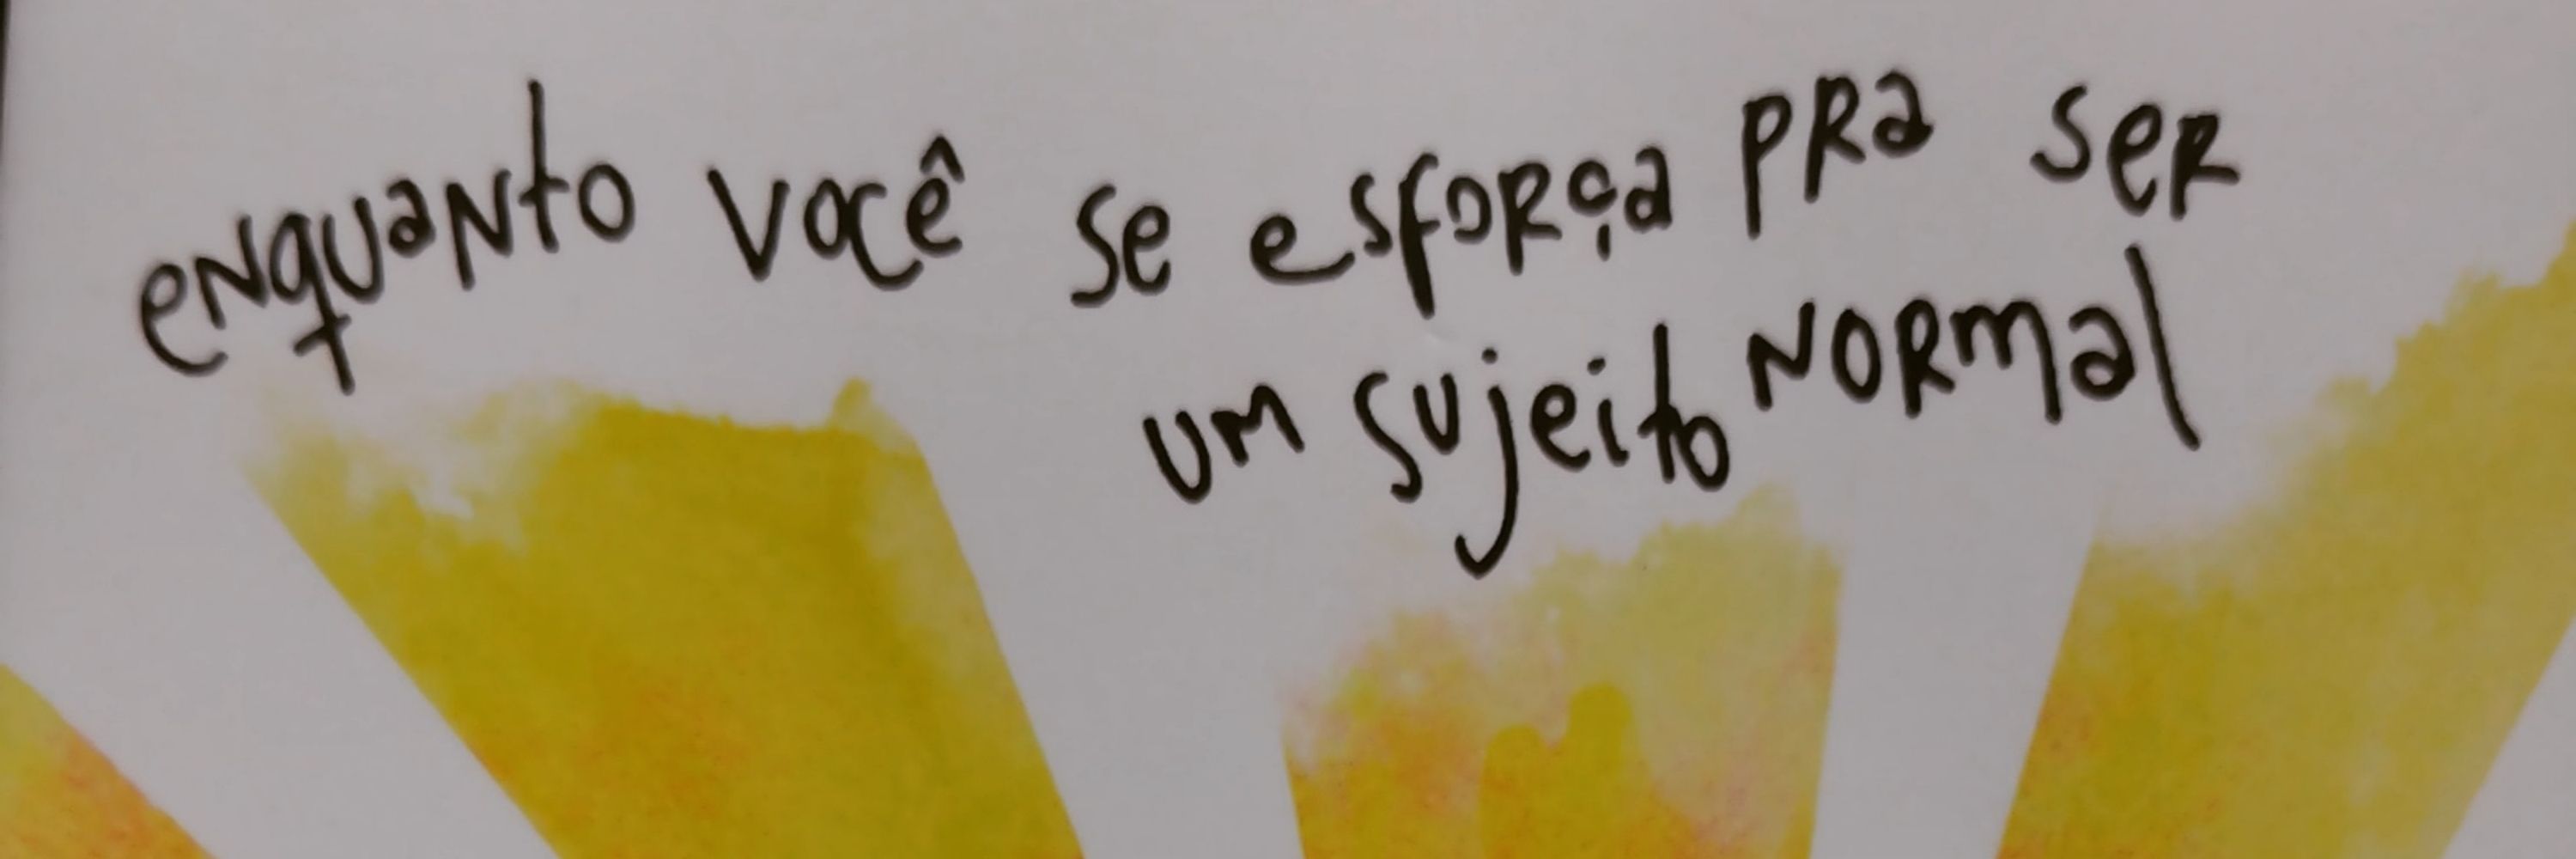 enquanto você se esforça pra ser
um sujeito normal